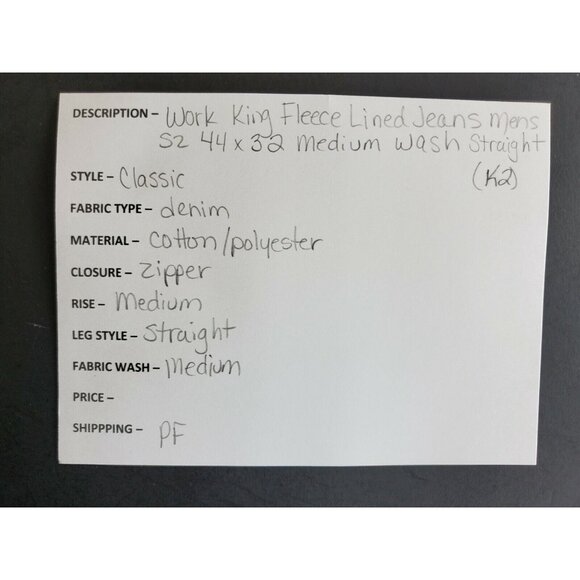 DESCRIPTION – Work King Fleece Lined Jeans mens
SZ 44 x 32 medium wash Straight
STYLE – Classic (K2)
FABRIC TYPE – denim
MATERIAL – cotton/polyester
CLOSURE – Zipper
RISE – Medium
LEG STYLE – Straight
FABRIC WASH – Medium
PRICE –
SHIPPPING – PF